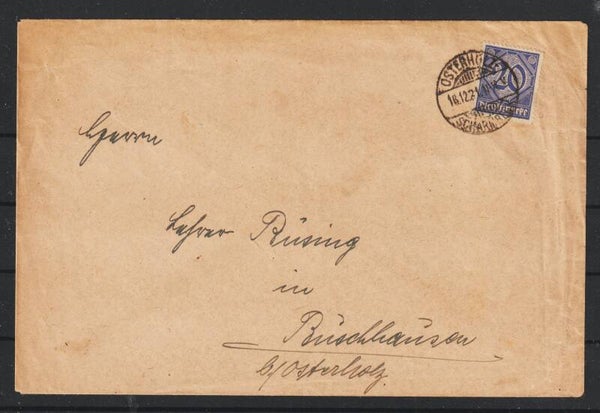 OSTERHOLZ
16.12.21
SCHARM
20
Herrn
Lehrer Rüsing
in
Buschhausen
b/Osterholz